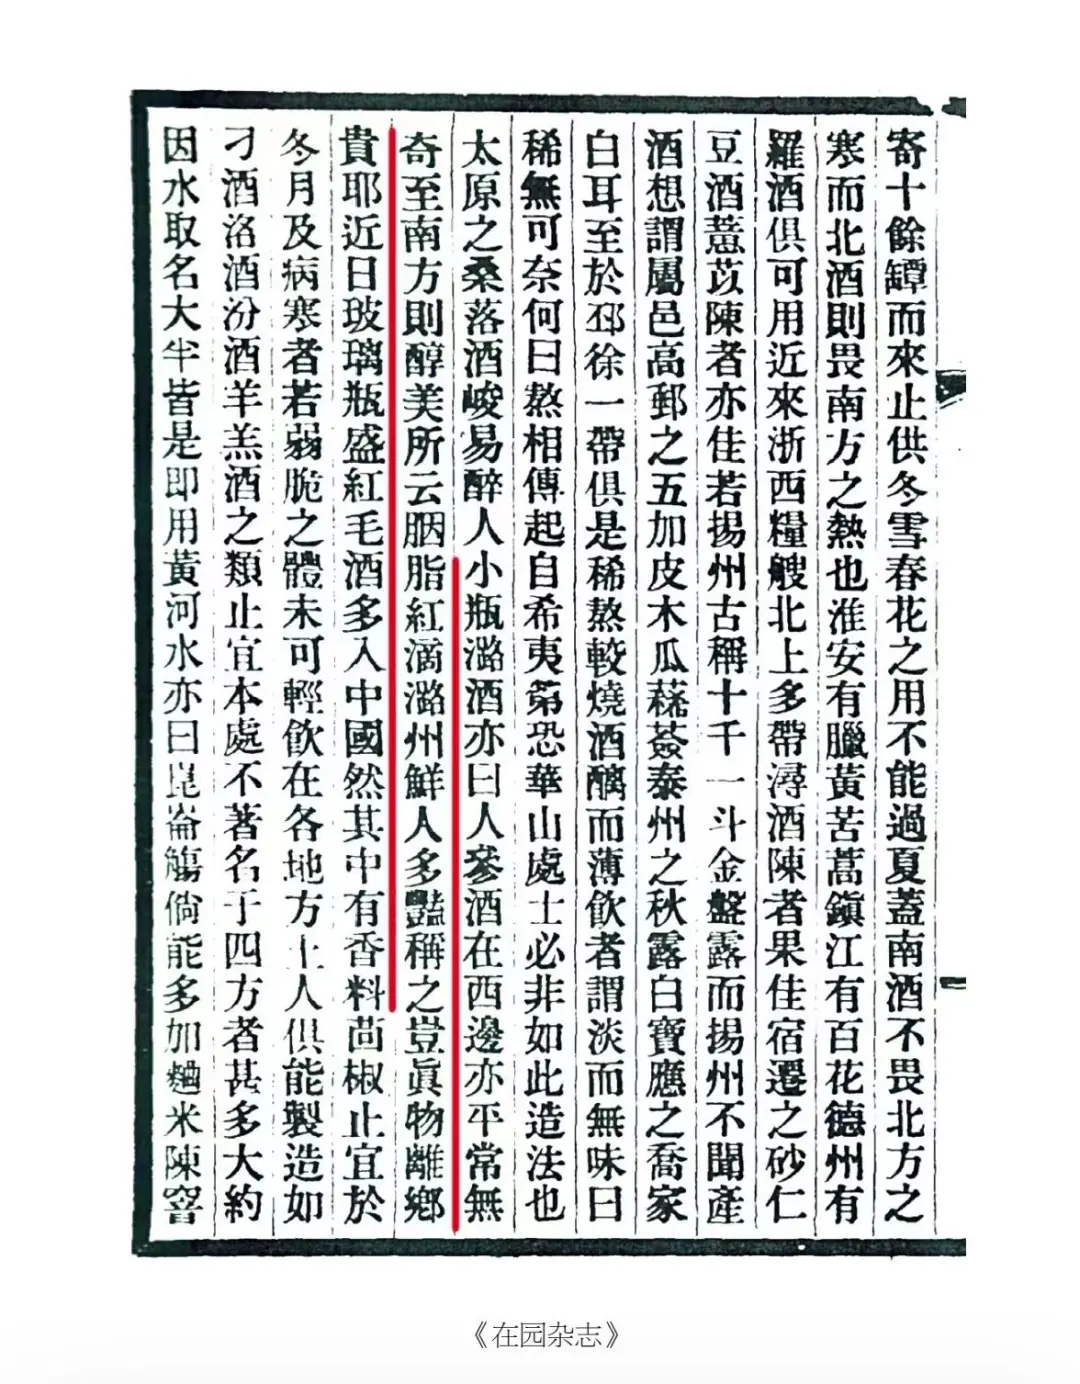 寄十餘罈而來止供冬雪春花之用不能過夏蓋南酒不畏北方之
寒而北酒則畏南方之熱也淮安有臘黃苦蒿鎮江有百花德州有
羅酒俱可用近來浙西糧艘北上多帶潯酒陳者果佳宿遷之砂仁
豆酒薏苡陳者亦佳若揚州古稱十千一斗金盤露而揚州不聞產
酒想謂屬邑高郵之五加皮木瓜蘓荅泰州之秋露白寶應之喬家
白耳至於邳徐一帶俱是稀熬較燒酒醨而薄飲者謂淡而無味曰
稀無可奈何曰熬相傳起自希夷第恐華山處士必非如此造法也
太原之桑落酒峻易醉人小瓶潞酒亦曰人參酒在西邊亦平常無
奇至南方則醇美所云胭脂紅滴潞州鮮人多豔稱之豈眞物離鄉
貴耶近日玻璃瓶盛紅毛酒多入中國然其中有香料茴椒止宜於
冬月及病寒者若弱脆之體未可輕飲在各地方土人俱能製造如
刁酒洛酒汾酒羊羔酒之類止宜本處不著名于四方者甚多大約
因水取名大半皆是即用黃河水亦曰崑崙觴倘能多加麯米陳窨
《在园杂志》